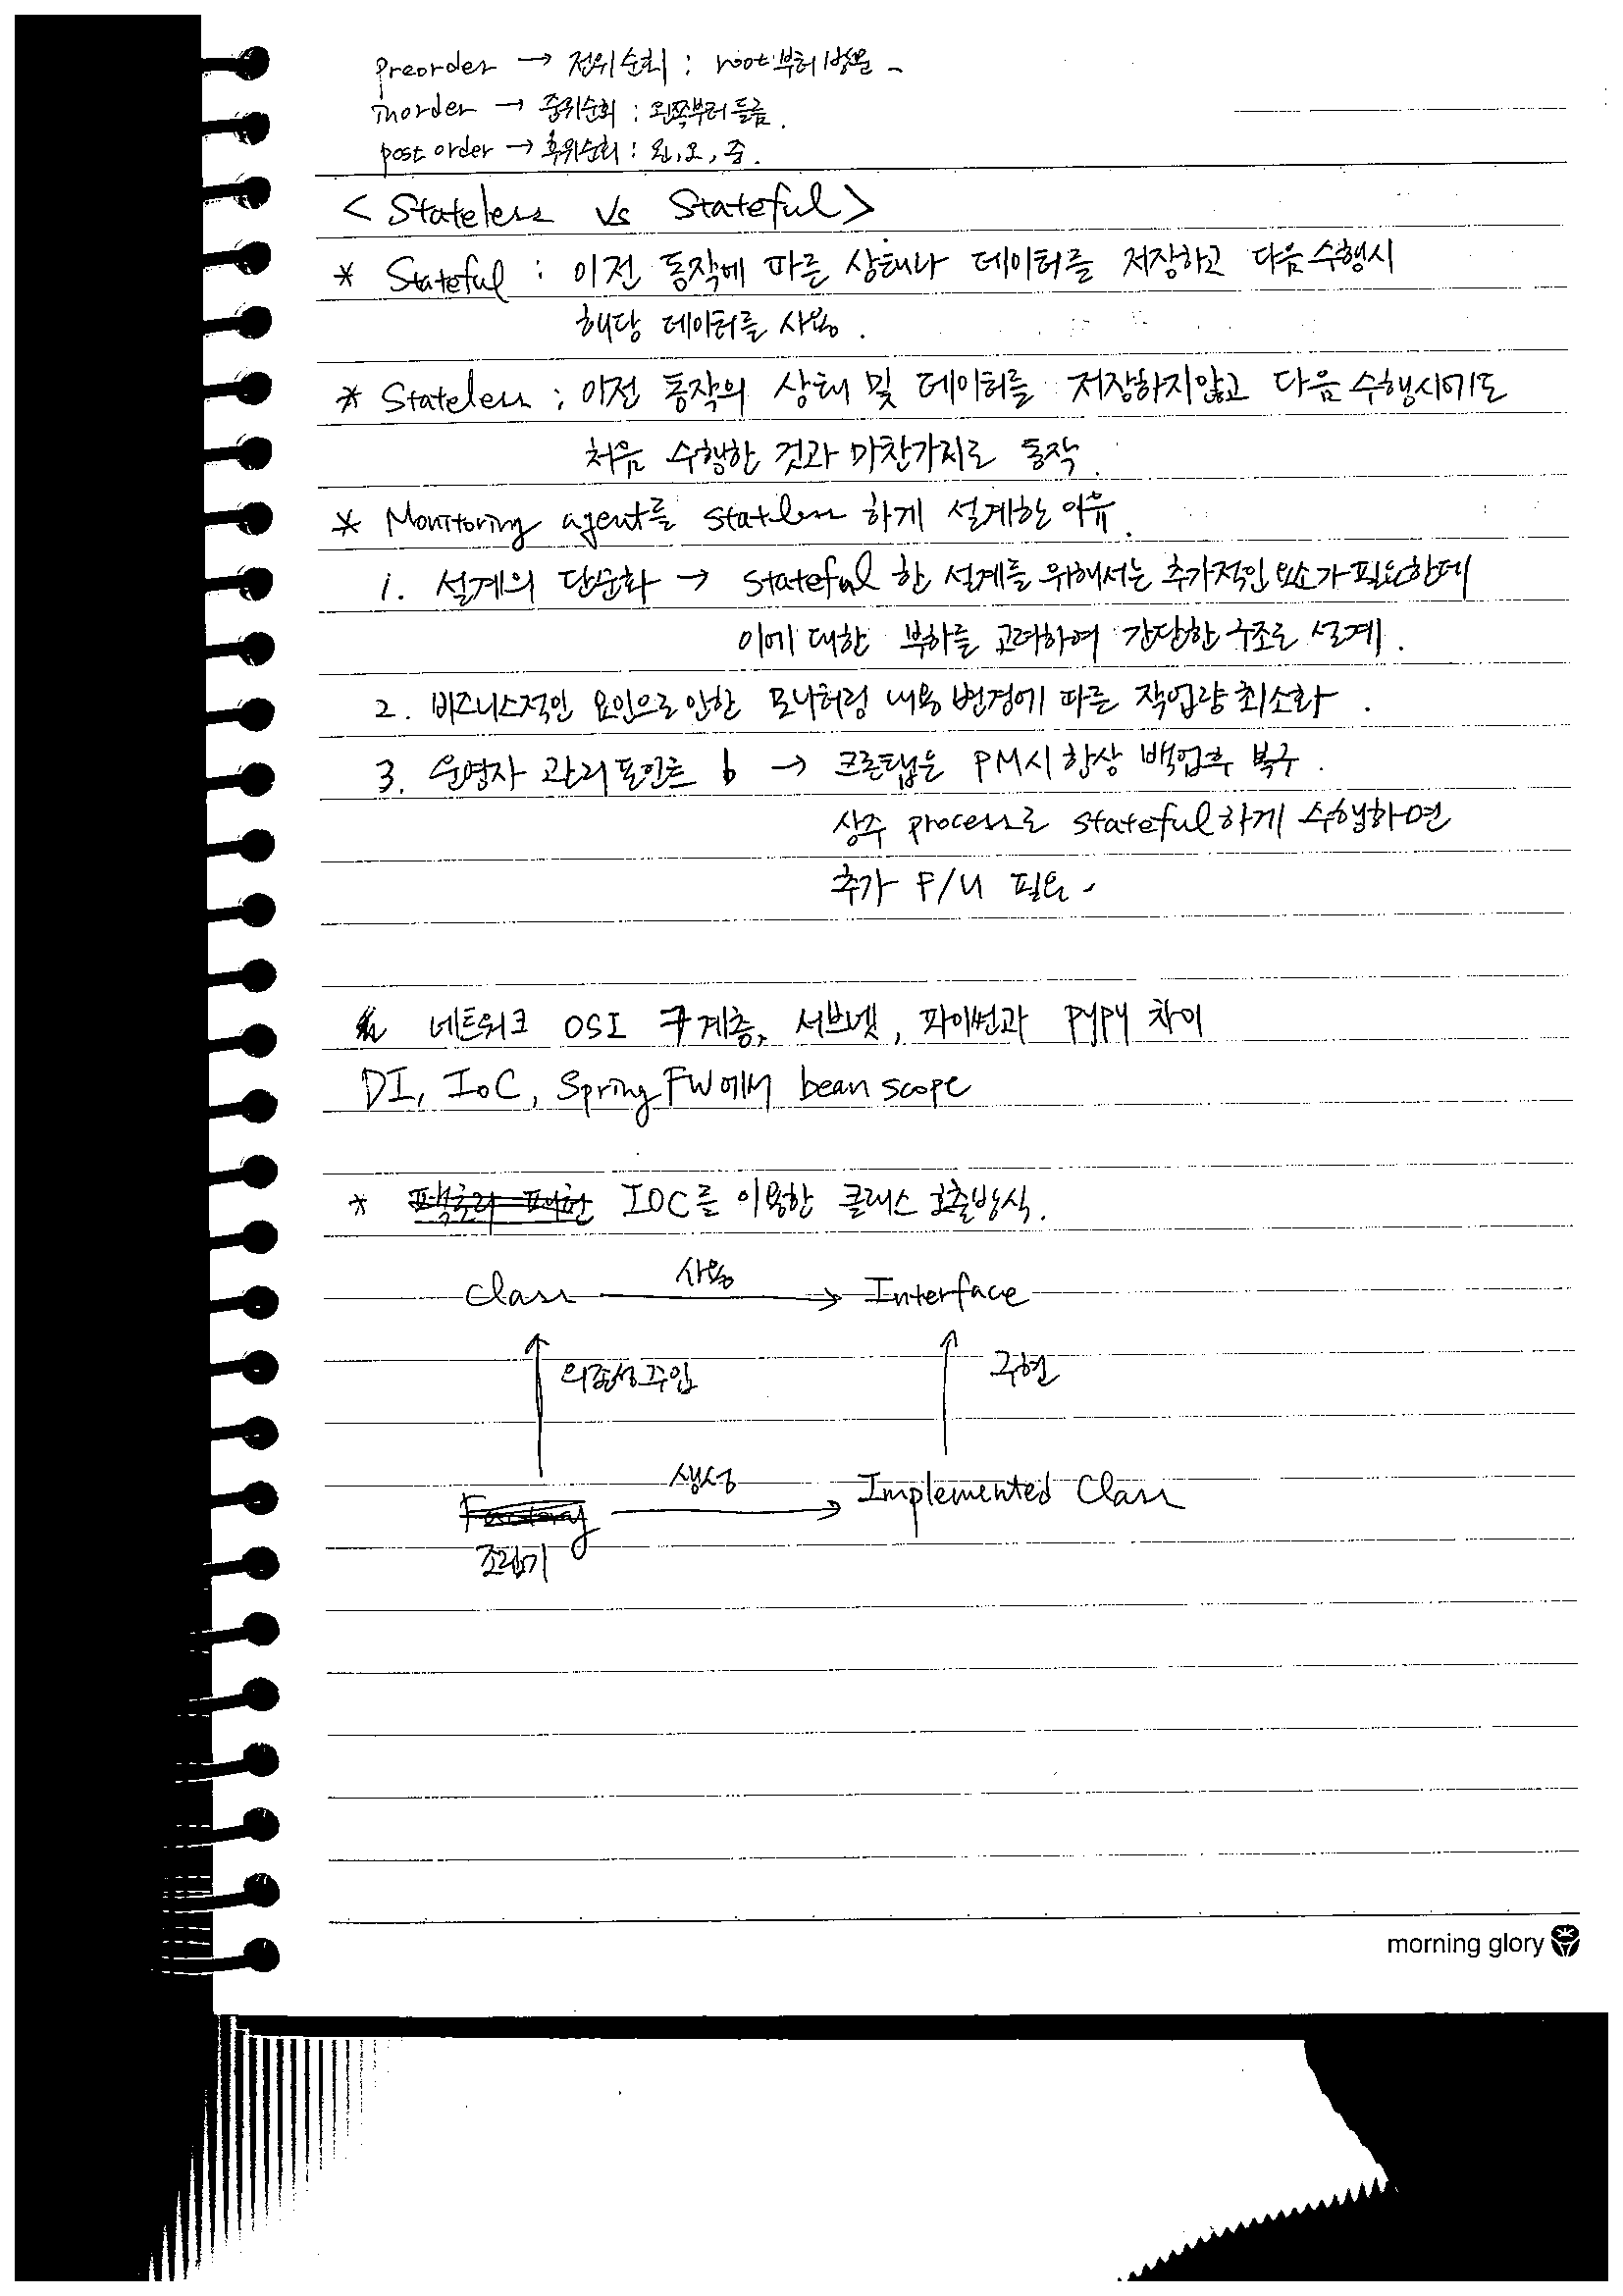 preorder → 전위순회 : root부터 방문
inorder → 중위순회 : 왼쪽부터 들름.
post order → 후위순회 : 왼, 오, 중.
< Stateless Vs Stateful >
* Stateful : 이전 동작에 따른 상태나 데이터를 저장하고 다음 수행시
해당 데이터를 사용.
* Stateless : 이전 동작의 상태 및 데이터를 저장하지않고 다음 수행시에도
처음 수행한 것과 마찬가지로 동작.
* Monitoring agent를 stateless 하게 설계한 이유.
1. 설계의 단순화 → stateful 한 설계를 위해서는 추가적인 요소가 필요한데
이에 대한 부하를 고려하여 간단한 구조로 설계.
2. 비즈니스적인 요인으로 인한 모니터링 내용 변경에 따른 작업량 최소화.
3. 운영자 관리 포인트 → 크론탭은 PM시 항상 백업후 복구.
상주 process로 stateful하게 수행하면
추가 F/U 필요.
네트워크 OSI 7계층, 서브넷, 파이썬과 pypy 차이
DI, IoC, Spring FW에서 bean scope
* IOC를 이용한 클래스 호출방식.
사용
Class → Interface
의존성주입 구현
생성
Factory → Implemented Class
조립기
morning glory